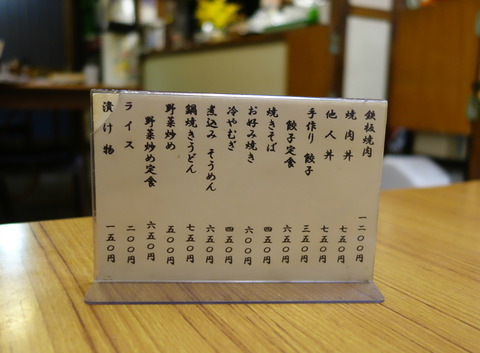 鉄板焼肉 一二〇〇円
焼肉丼 七五〇円
他人丼 七五〇円
手作り 餃子 三五〇円
餃子定食 六五〇円
焼きそば 四五〇円
お好み焼き 六〇〇円
冷やむぎ 四五〇円
煮込み そうめん 六五〇円
鍋焼きうどん 七五〇円
野菜炒め 五〇〇円
野菜炒め定食 六五〇円
ライス 二〇〇円
漬け物 一五〇円